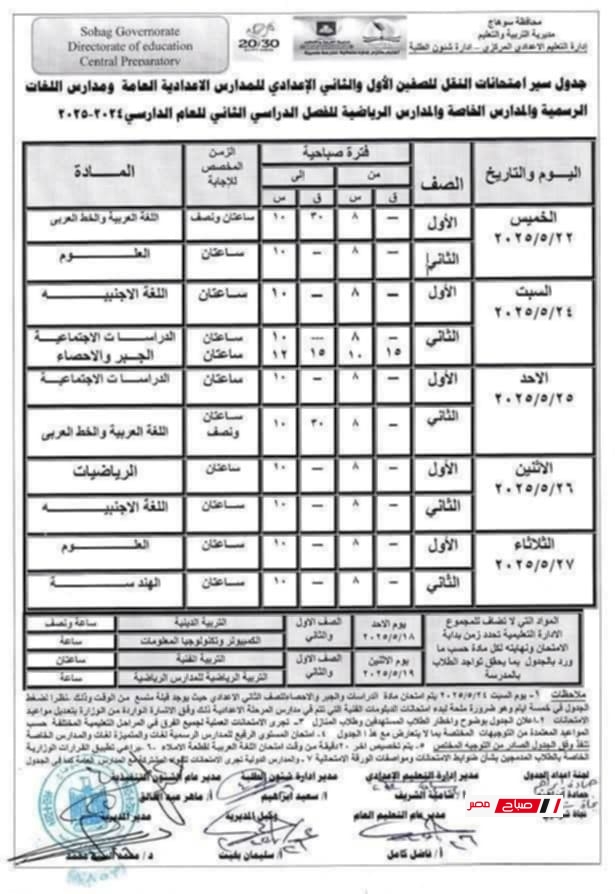 محافظة سوهاج
مديرية التربية والتعليم
إدارة التعليم الاعدادي المركزي - إدارة شئون الطلبة
20/30
Sohag Governorate
Directorate of education
Central Preparatory
جدول سير امتحانات النقل للصفين الأول والثاني الإعدادي للمدارس الاعدادية العامة ومدارس اللغات
الرسمية والمدارس الخاصة والمدارس الرياضية للفصل الدراسي الثاني للعام الدارسي ٢٠٢٤-٢٠٢٥
اليوم والتاريخ الصف فترة صباحية الزمن المخصص للإجابة المــــادة
من إلى
ق س ق س
الخميس ٢٠٢٥/٥/٢٢ الأول — ٨ ٣٠ ١٠ ساعتان ونصف اللغة العربية والخط العربى
الثاني — ٨ — ١٠ ساعتان العلـــوم
السبت ٢٠٢٥/٥/٢٤ الأول — ٨ — ١٠ ساعتان اللغة الاجنبيه
الثاني — ٨ — ١٠ ساعتان الدراسات الاجتماعية
١٥ ١٠ ١٥ ١٢ ساعتان الجبر والاحصاء
الاحد ٢٠٢٥/٥/٢٥ الأول — ٨ — ١٠ ساعتان الدراسات الاجتماعية
الثاني — ٨ ٣٠ ١٠ ساعتان ونصف اللغة العربية والخط العربى
الاثنين ٢٠٢٥/٥/٢٦ الأول — ٨ — ١٠ ساعتان الرياضيات
الثاني — ٨ — ١٠ ساعتان اللغة الاجنبيه
الثلاثاء ٢٠٢٥/٥/٢٧ الأول — ٨ — ١٠ ساعتان العلـــوم
الثاني — ٨ — ١٠ ساعتان الهندســـة
المواد التي لا تضاف للمجموع
الادارة التعليمية تحدد زمن بداية
الامتحان ونهايته لكل مادة حسب ما
ورد بالجدول بما يحقق تواجد الطلاب
بالمدرسة
يوم الاحد ٢٠٢٥/٥/١٨ الصف الاول والثاني التربية الدينية ساعة ونصف
الكمبيوتر وتكنولوجيا المعلومات ساعة
يوم الاثنين ٢٠٢٥/٥/١٩ الصف الاول والثاني التربية الفنية ساعتان
التربية الرياضية للمدارس الرياضية ساعة
ملاحظات ١- يوم السبت ٢٠٢٥/٥/٢٤ يتم امتحان مادة الدراسات والجبر والاحصاء للصف الثاني الاعدادي حيث يوجد فيلة متسع من الوقت وذلك نظرا لضغط
الجدول في خمسة ايام وهو ضرورة ملحة لبدء امتحانات الدبلومات الفنية التي تتم في مدارس المرحلة الاعدادية وذلك وفق الاشارة الواردة من الوزارة بتعديل مواعيد
الامتحانات ٢- اعلان الجدول بوضوح واخطار الطلاب المستهدفين وطلاب المنازل ٣- تجرى الامتحانات العملية لجميع الفرق في المراحل التعليمية المختلفة حسب
المواعيد المعتمدة من التوجيهات المختصة بما لا يتعارض مع هذا الجدول ٤- امتحان المستوى الرفيع للمدارس الرسمية لغات والمتميزة لغات والمدارس الخاصة
تنفذ وفق الجدول الصادر من التوجيه المختص ٥- يتم تخصيص اخر ٢٠ دقيقة من وقت امتحان اللغة العربية لقطعة الاملاء ٦- يراعي تطبيق القرارات الوزارية
الخاصة بالطلاب المدمجين بشأن ضوابط الامتحانات ومواصفات الورقة الامتحانية ٧-
لجنة اعداد الجدول
مدير إدارة التعليم الإعدادي
مدير ادارة شئون الطلبة
أ/ سعيد ابراهيم
أ/ ماهر عبد الخالق
مدير عام التعليم العام
أ/ فاضل كامل
وكيل المديرية
أ/ سليمان بخيت
مدير المديرية
صباح مصر